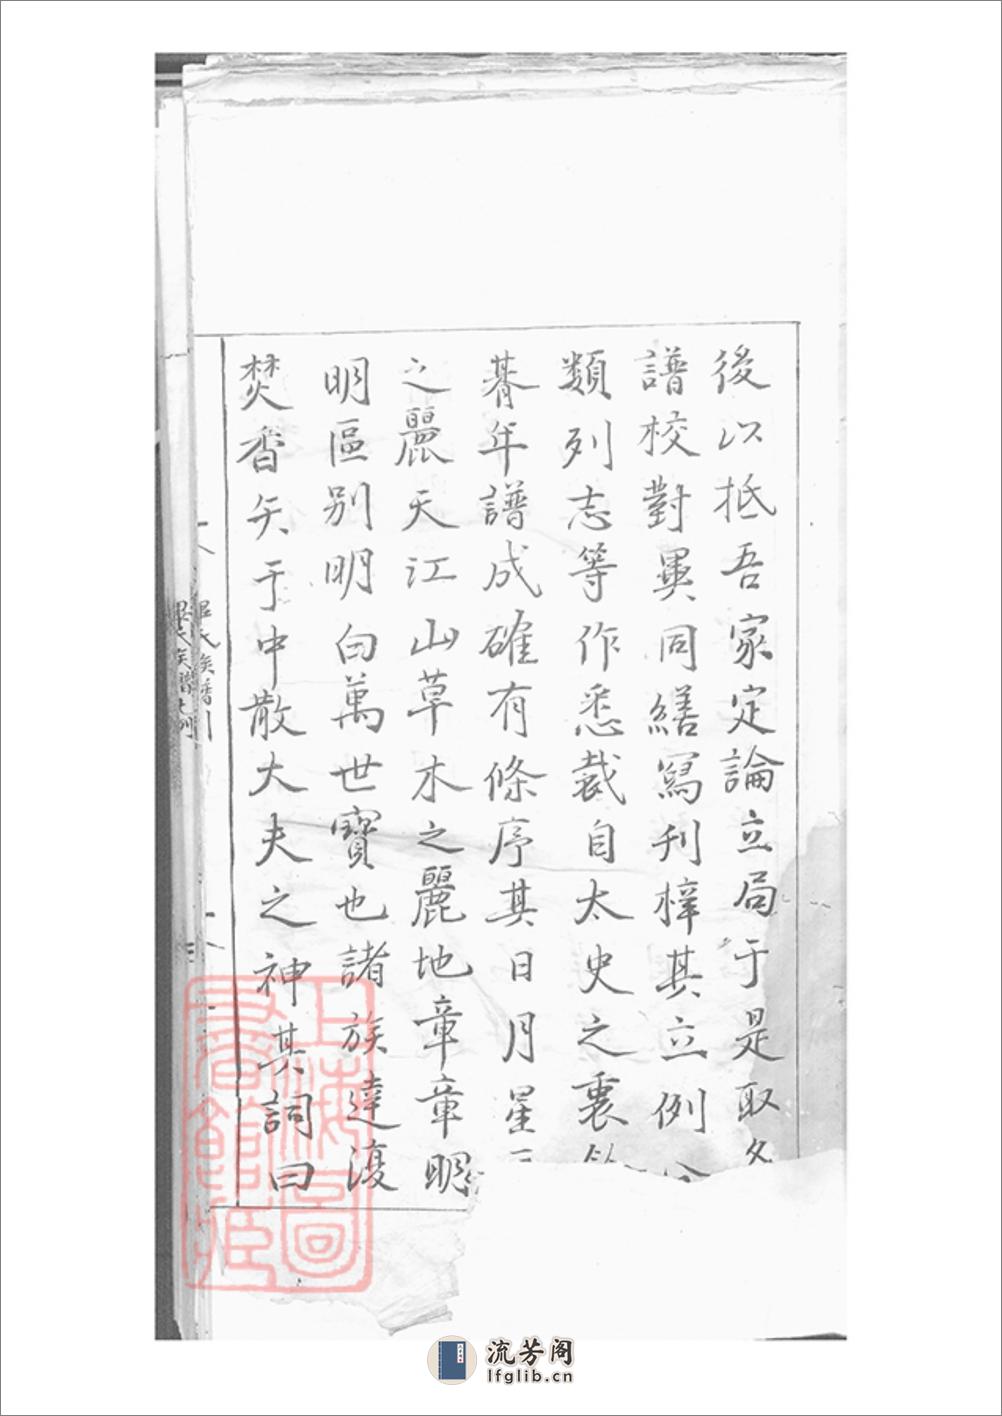 後以抵吾家定論立局于是取各
譜校對異同繕寫刊梓其立例分
類列志等作悉裁自太史之裏
朞年譜成確有條序其日月星
之麗天江山草木之麗地章章明
明區别明白萬世寶也諸族達復
焚香矢于中散大夫之神其詞曰
氏族譜
氏族譜
上海圖書館藏
流芳阁
lfglib.cn